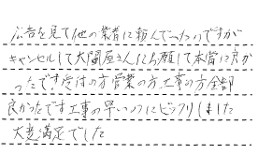 広告を見て他の業者に頼んでいたのですが
キャンセルして大関屋さんにお願して本当に良か
ったです受付の方営業の方工事の方全部
良かったです工事の早いのにビックリしました
大変満足でした